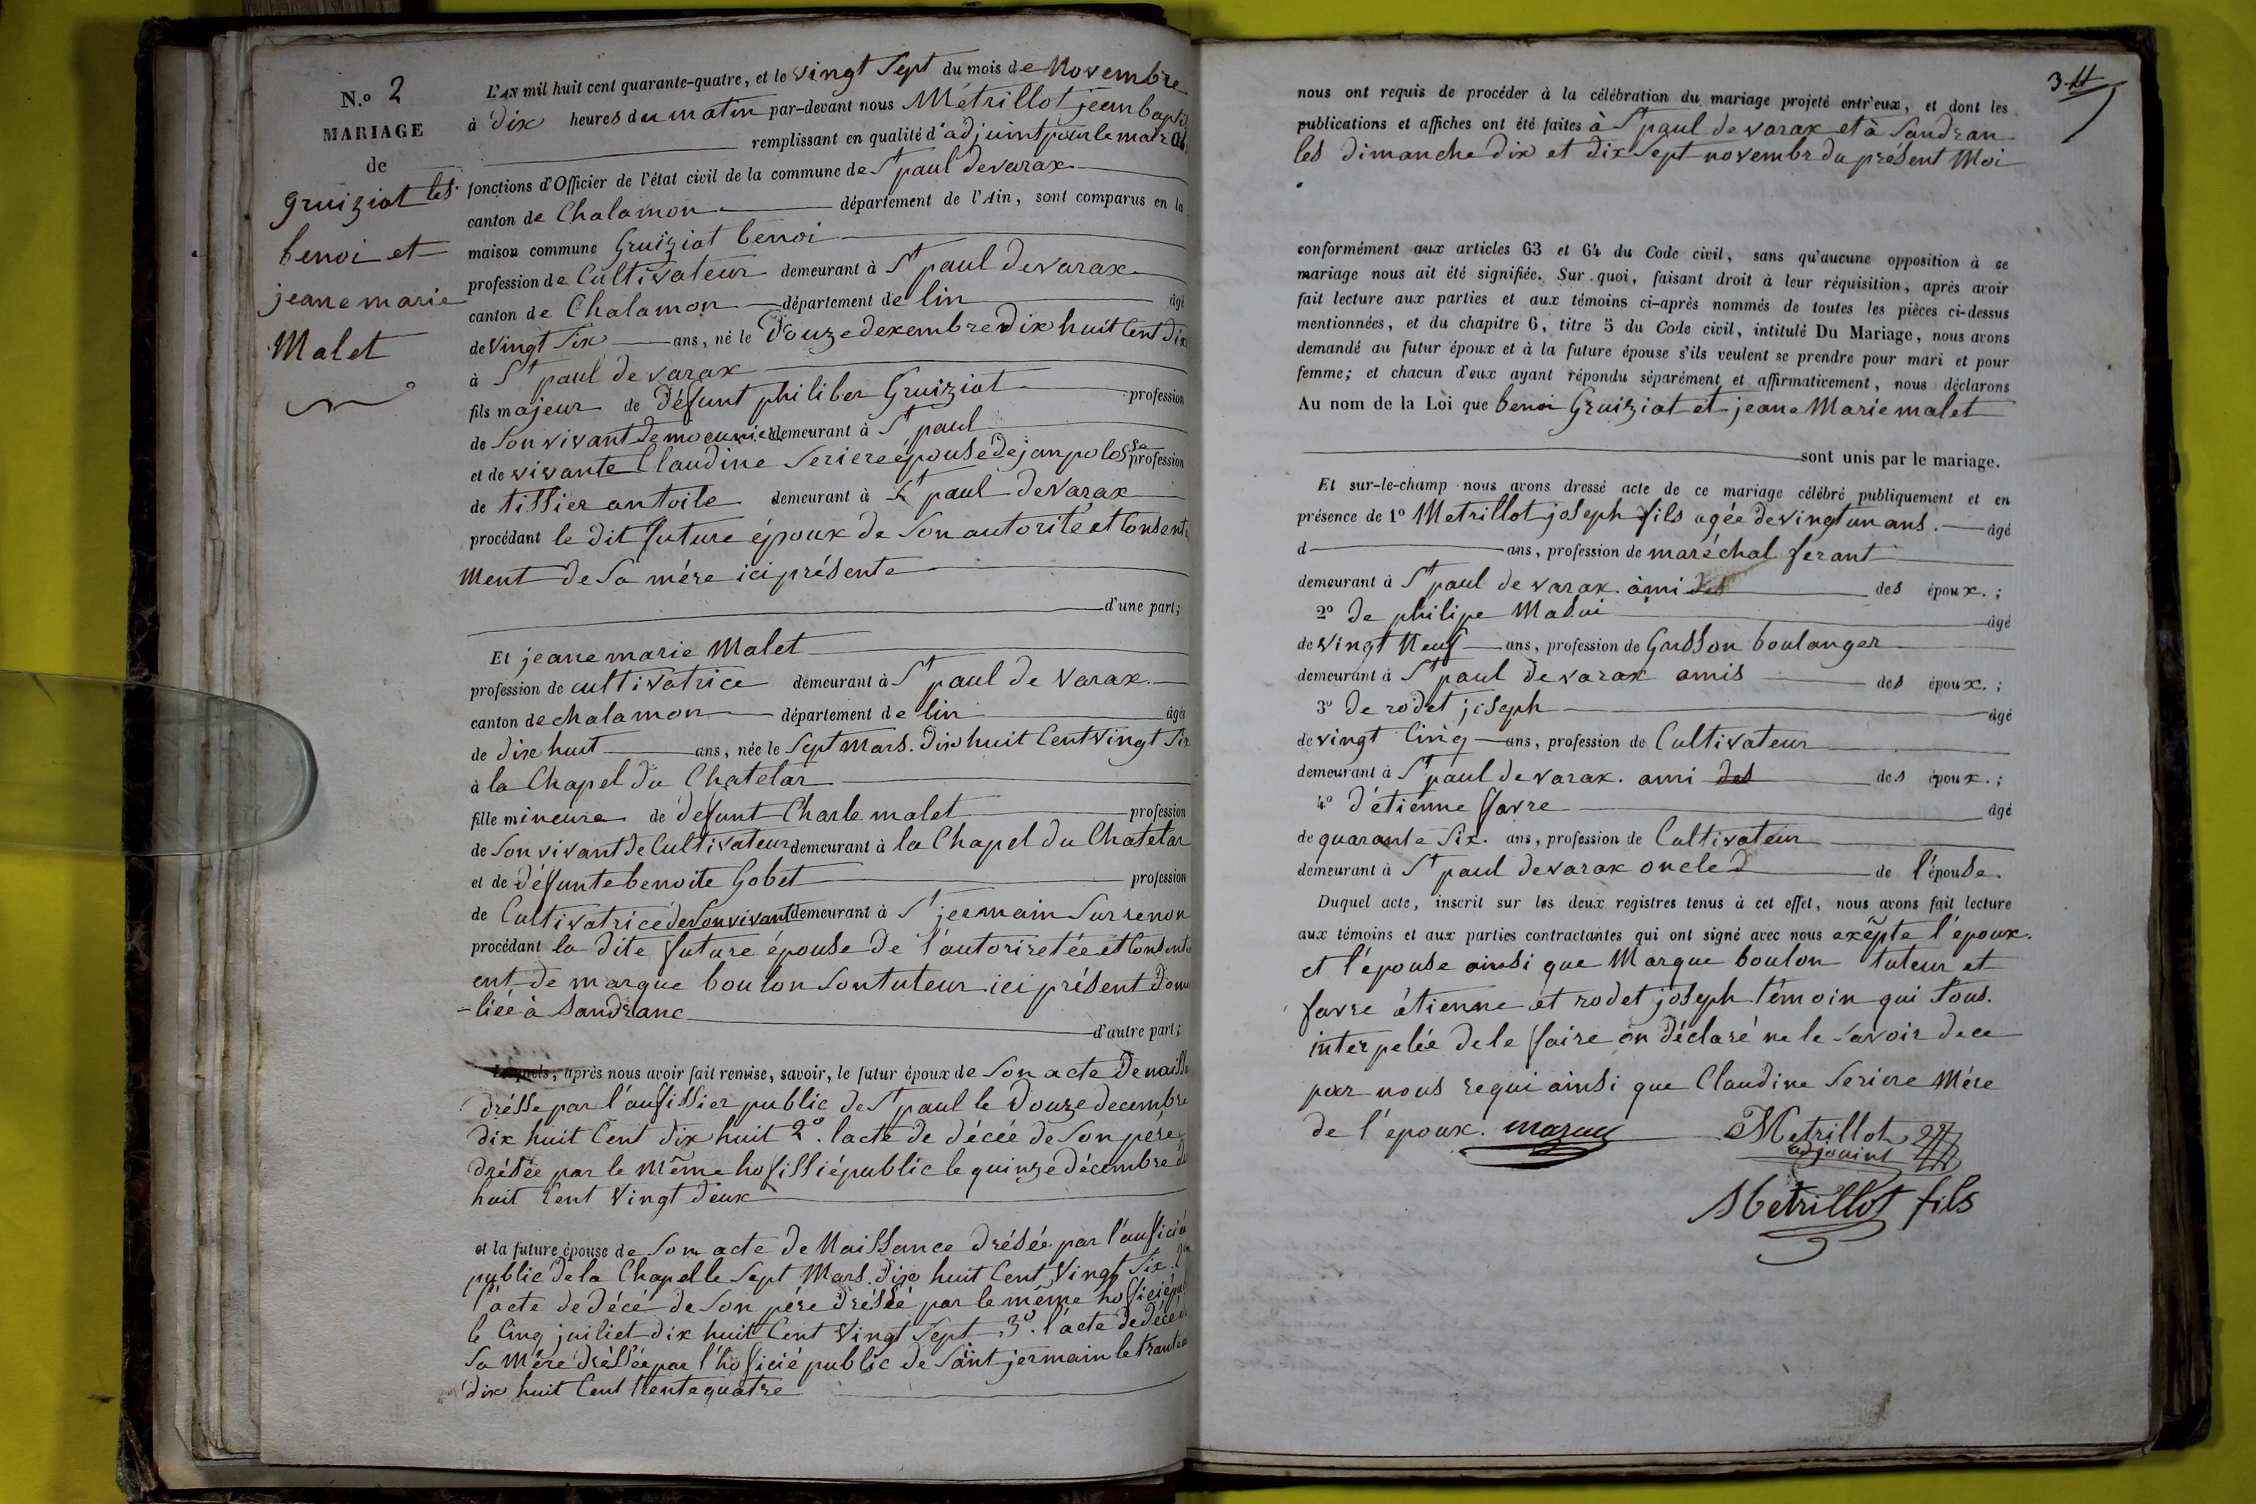 N.o 2
MARIAGE
de
gruiziat les
benoi et
jeane marie
Malet
L'AN mil huit cent quarante-quatre, et le vingt Sept du mois de Novembre
à dix heures du matin par-devant nous Métrillot jean bapti
remplissant en qualité d'adjuint pour le maire les
fonctions d'Officier de l'état civil de la commune de St paul de varax
canton de Chalamon département de l'Ain, sont comparus en la
maison commune Gruiziat benoi
profession de Cultivateur demeurant à St paul de varax
canton de Chalamon département de lin âgé
de vingt Six ans, né le Douze decembre dix huit Cent dix
à St paul de varax
fils majeur de Défunt philiber Gruiziat profession
de Son vivant de meunier demeurant à St paul
et de vivante Claudine Seriere épouse de jan polosse profession
de tissier an toile demeurant à St paul de varax
procédant le dit future époux de Son autorité et Consenti
ment de Sa mére ici présente
d'une part;
Et jeane marie Malet
profession de cultivatrice demeurant à St paul de Varax.
canton de chalamon département de lin âgée
de dix huit ans, née le Sept Mars. Dix huit Cent vingt Six
à la Chapel du Chatelar
fille mineure de défunt Charle malet profession
de Son vivant de Cultivateur demeurant à la Chapel du Chatelar
et de défunte benoite Gobet profession
de Cultivatrice de Son vivant demeurant à St jermain Sur renon
procédant la dite future épouse de l'autoriretée et Consentem
ent de marque boulon Son tuteur ici présent Domi
-liéé à Sandranc
d'autre part;
Lesquels, après nous avoir fait remise, savoir, le futur époux de Son acte De naissan
dréssé par l'aufissier public de St paul le Douze decembre
dix huit Cent dix huit 2o. l'acte de décée de Son pere
drésée par le même hofissié public le quinze décembre di
huit Cent Vingt deux
et la future épouse de Son acte de Naissance drésée par l'auficié
public de la Chapelle Sept Mars. dix huit Cent Vingt Six. 2o
l'acte de décé de Son pére dréséé par le même hoficié p
le Cinq juiliet dix huit Cent Vingt Sept. 3o. l'acte de décé
Sa Mére dréssée par l'hoficié public de Saint jermain le trante
dix huit Cent trente quatre
3-tt
nous ont requis de procéder à la célébration du mariage projeté entr'eux, et dont les
publications et affiches ont été faites à St paul de varax et à Sandran
les dimanche dix et dix Sept novembr du présent Moi
conformément aux articles 63 et 64 du Code civil, sans qu'aucune opposition à ce
mariage nous ait été signifiée. Sur quoi, faisant droit à leur réquisition, après avoir
fait lecture aux parties et aux témoins ci-après nommés de toutes les pièces ci-dessus
mentionnées, et du chapitre 6, titre 5 du Code civil, intitulé Du Mariage, nous avons
demandé au futur époux et à la future épouse s'ils veulent se prendre pour mari et pour
femme; et chacun d'eux ayant répondu séparément et affirmativement, nous déclarons
Au nom de la Loi que benoi Gruiziat et jeane Marie malet
sont unis par le mariage.
Et sur-le-champ nous avons dressé acte de ce mariage célébré publiquement et en
présence de 1o Metrillot joseph fils agée de vingt un ans. âgé
d ans, profession de maréchal ferant
demeurant à St paul de varax. ami des des époux.;
2o de philipe Masui âgé
de vingt neuf ans, profession de Gasson boulanger
demeurant à St paul de varax amis des époux.;
3o de rodet joseph âgé
de vingt Cinq ans, profession de Cultivateur
demeurant à St paul de varax. ami des des époux.;
4o d'étienne favre âgé
de quarante Six. ans, profession de Cultivateur
demeurant à St paul de varax oncle d de l'épouse.
Duquel acte, inscrit sur les deux registres tenus à cet effet, nous avons fait lecture
aux témoins et aux parties contractantes qui ont signé avec nous exepte l'époux.
et l'épouse ainsi que Marque boulon tuteur et
favre étienne et rodet joseph témoin qui tous.
interpelée de le faire on déclaré ne le Savoir de ce
par nous requi ainsi que Claudine Seriere Mére
de l'époux. Metrillot
adjouint
Metrillot fils